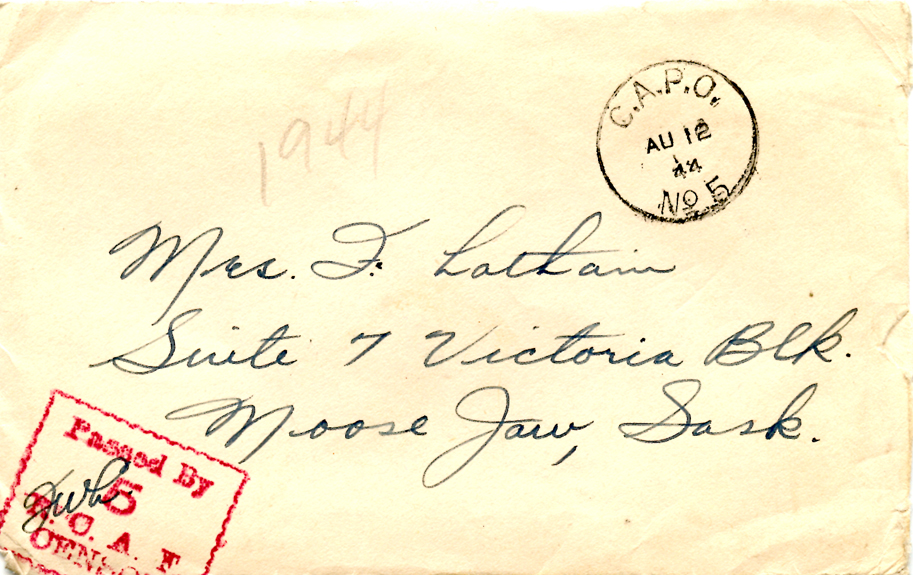 1944
C.A.P.O.
AU 12
44
No 5
Mrs. F. Latham
Suite 7 Victoria Blk.
Moose Jaw, Sask.
Passed By
5
R.C.A.F
CENSOR